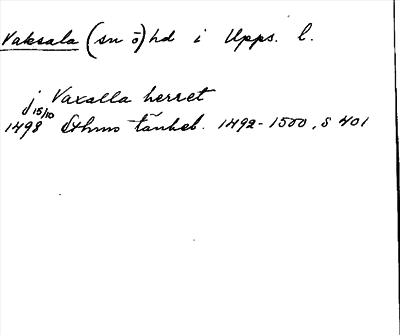 Vaksala (sn ö) hd i Upps. l.
j Vaxalla herret
1498 d 15/10 Sthms tänkeb. 1492-1500, s 401